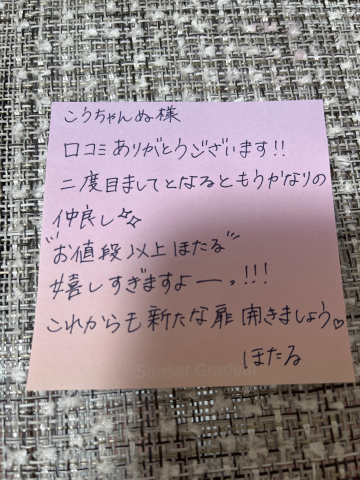 こうちゃんぬ様
口コミありがとうございます!!
二度目ましてとなるともうかなりの
仲良し✨
"お値段以上ほたる"
嬉しすぎますよーっ!!!
これからも新たな扉開きましょう♡
ほたる
Sunset Gradual